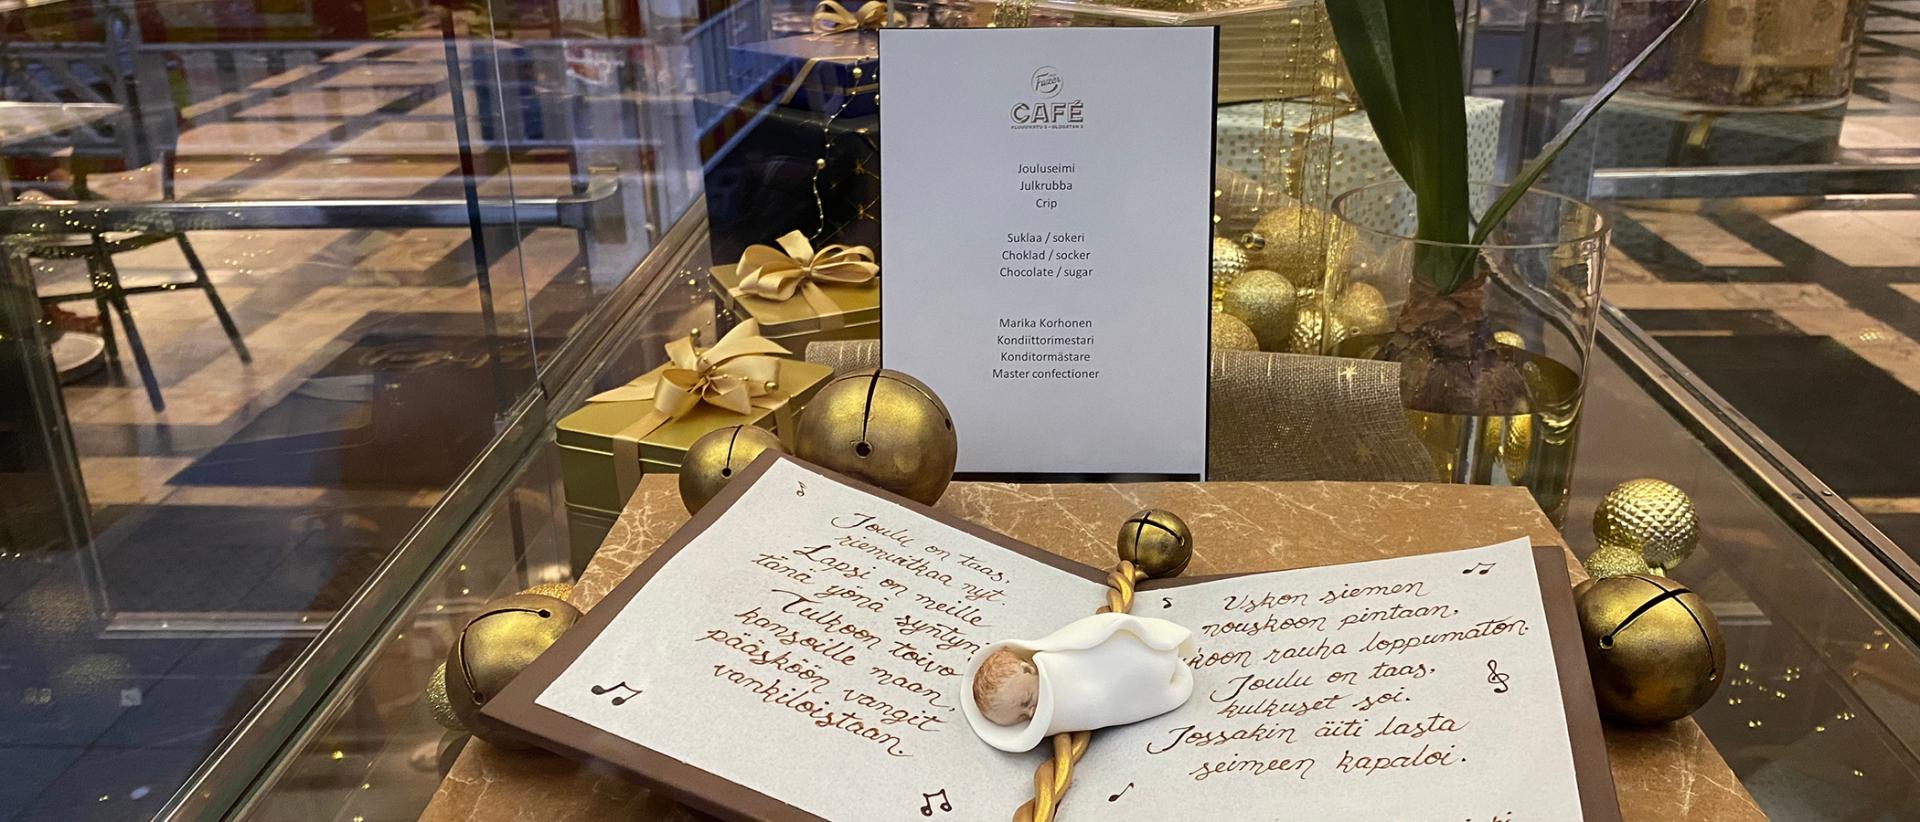 Fazer
CAFÉ
KLUUVIKATU 3 – GLOGATAN 3
Jouluseimi
Julkrubba
Crip
Suklaa / sokeri
Choklad / socker
Chocolate / sugar
Marika Korhonen
Kondiittorimestari
Konditormästare
Master confectioner
Joulu on taas,
riemuitkaa nyt.
Lapsi on meille
tänä yönä syntyn
Tulkoon toivo
kansoille maan,
pääsköön vangit
vankiloistaan.
Uskon siemen
nouskoon pintaan,
koon rauha loppumaton.
Joulu on taas,
kulkuset soi.
Jossakin äiti lasta
seimeen kapaloi.